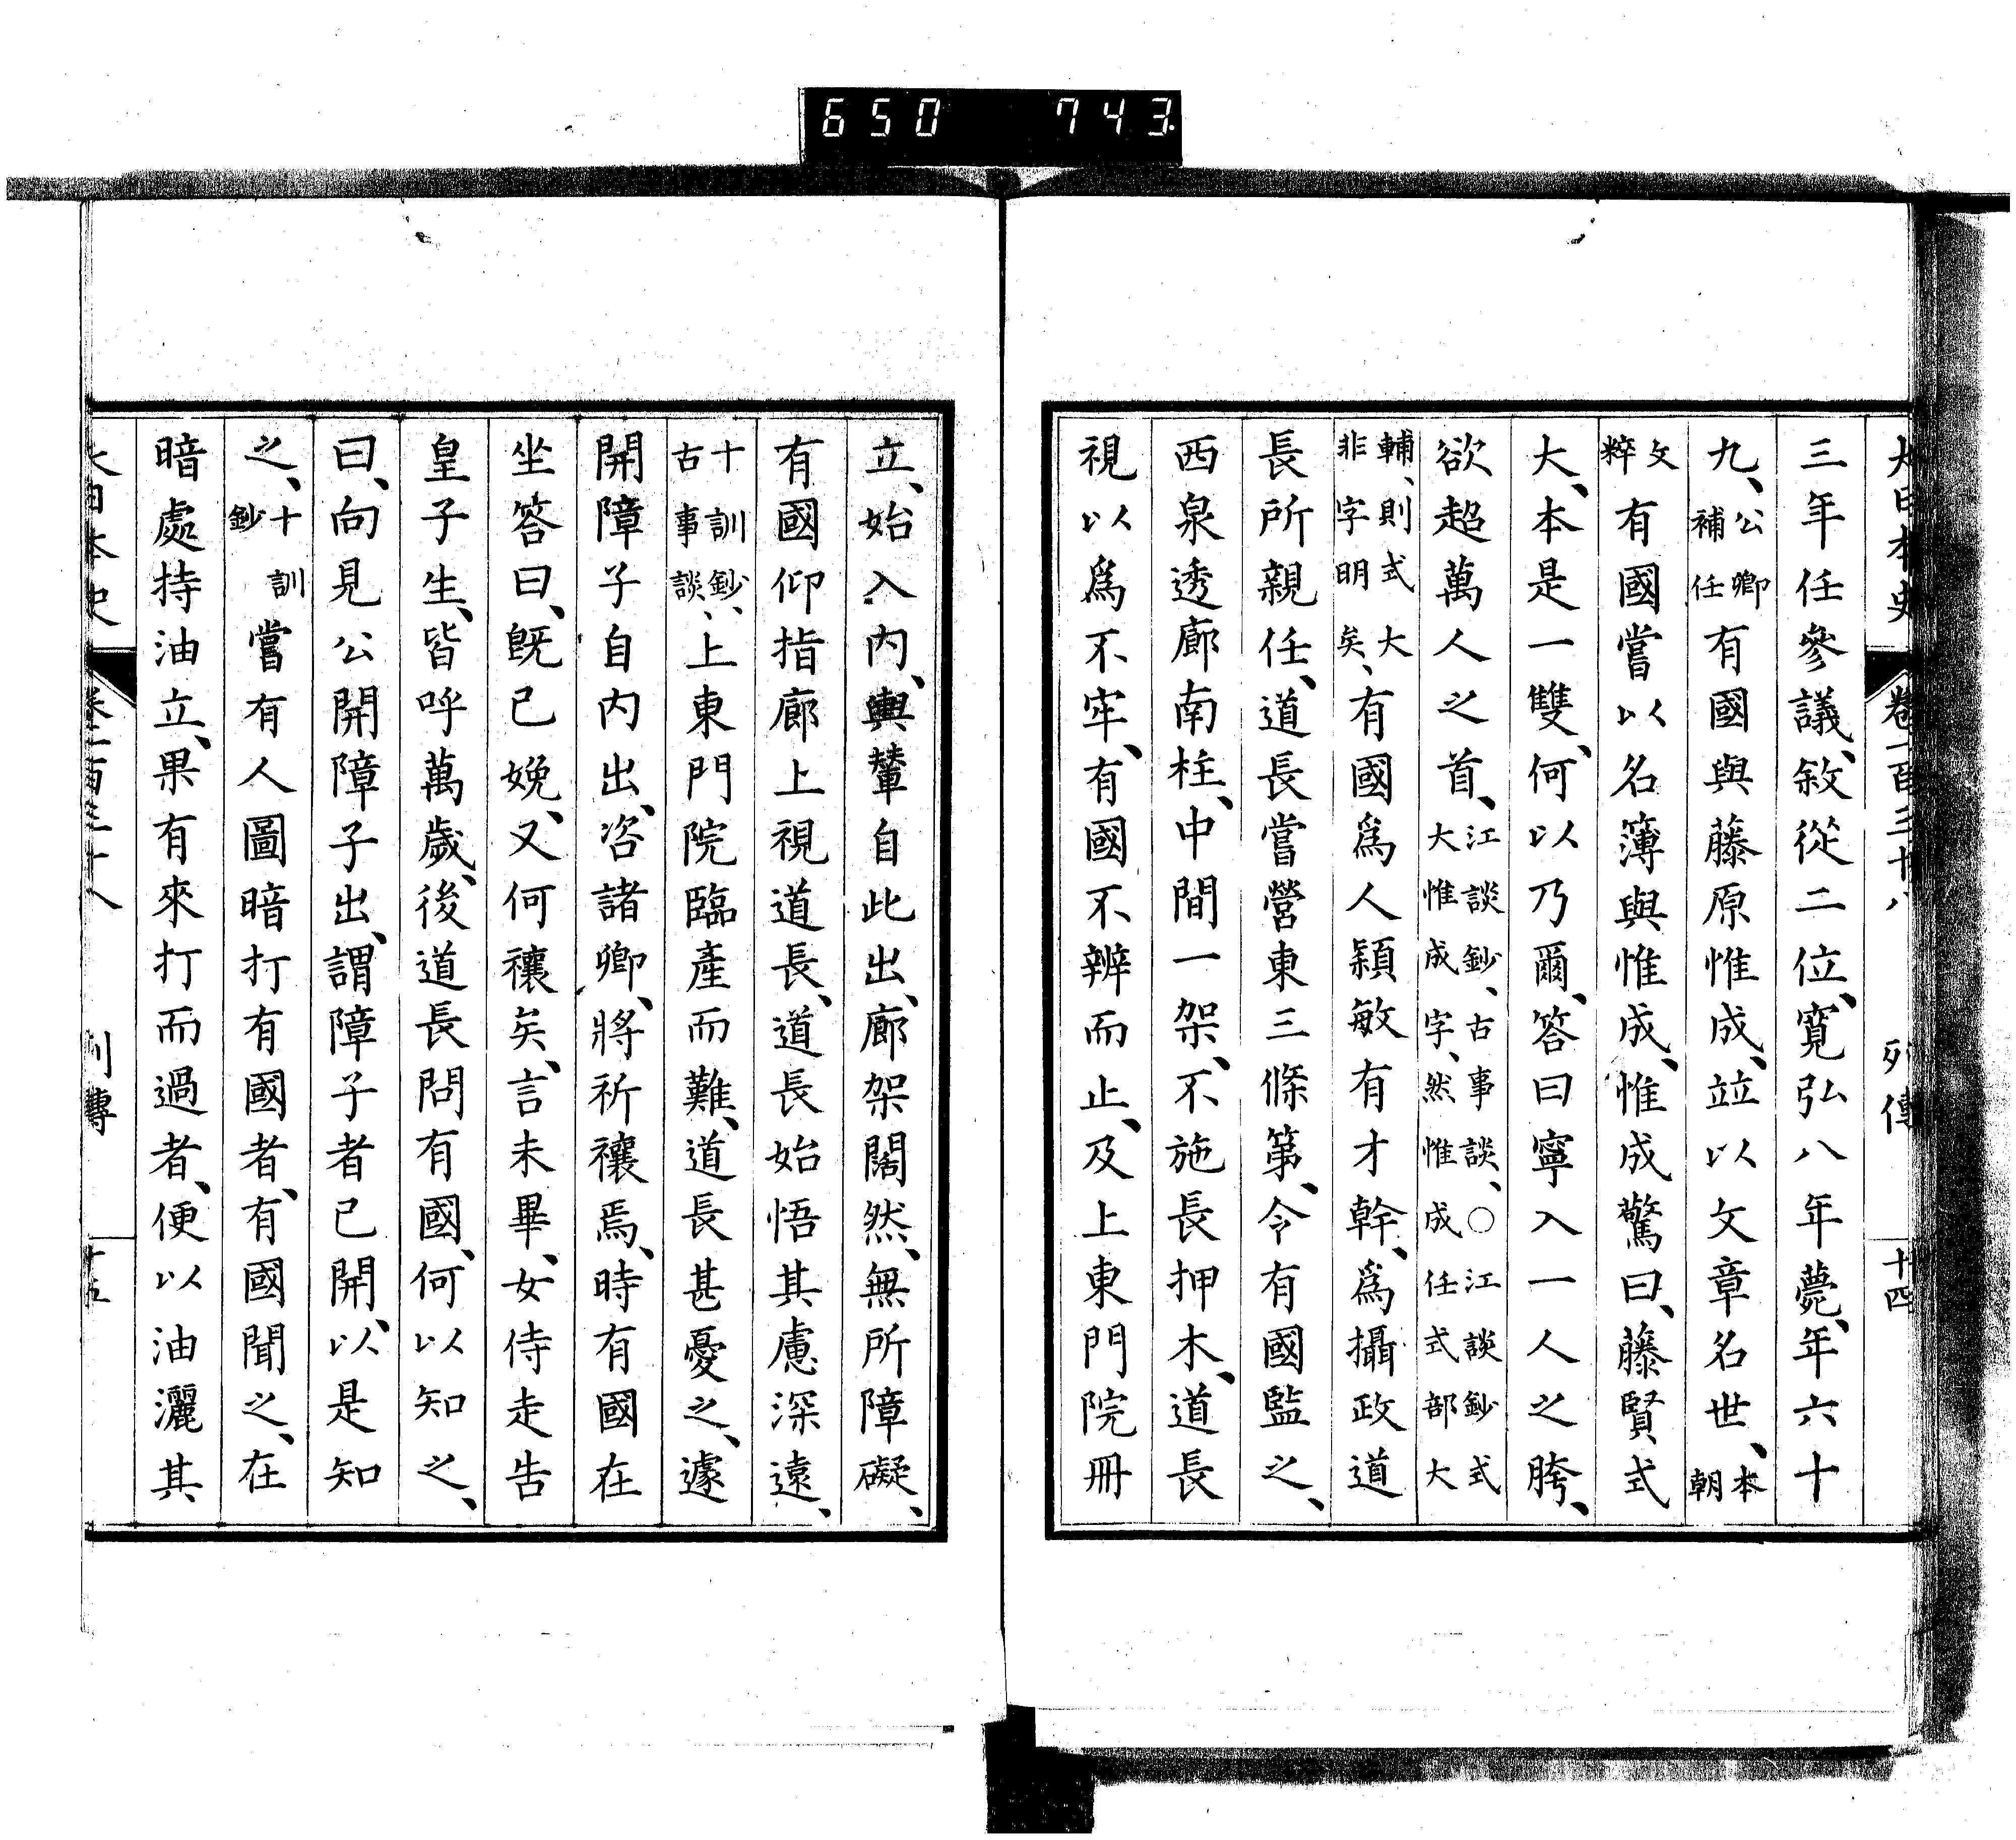 650 743
大日本史 卷一百三十八 列傳 十四
三年任參議、敘從二位、寬弘八年薨、年六十
九、公卿補任有國與藤原惟成、竝以文章名世、本朝
文粹有國嘗以名簿與惟成、惟成驚曰、藤賢式
大、本是一雙、何以乃爾、答曰寧入一人之胯、
欲超萬人之首、江談鈔、古事談、○江談鈔式大惟成字、然惟成任式部大
輔、則式大非字明矣、有國爲人穎敏有才幹、爲攝政道
長所親任、道長嘗營東三條第、令有國監之、
西泉透廊南柱、中間一架、不施長押木、道長
視以爲不牢、有國不辨而止、及上東門院冊
立、始入內、輿輦自此出、廊架闊然、無所障礙、
有國仰指廊上視道長、道長始悟其慮深遠、
十訓鈔、古事談、上東門院臨產而難、道長甚憂之、遽
開障子自內出、咨諸卿、將祈禳焉、時有國在
坐答曰、旣已娩、又何禳矣、言未畢、女侍走告
皇子生、皆呼萬歲、後道長問有國、何以知之、
曰、向見公開障子出、謂障子者已開、以是知
之、十訓鈔嘗有人圖暗打有國者、有國聞之、在
暗處持油立、果有來打而過者、便以油灑其
大日本史 卷一百三十八 列傳 十五